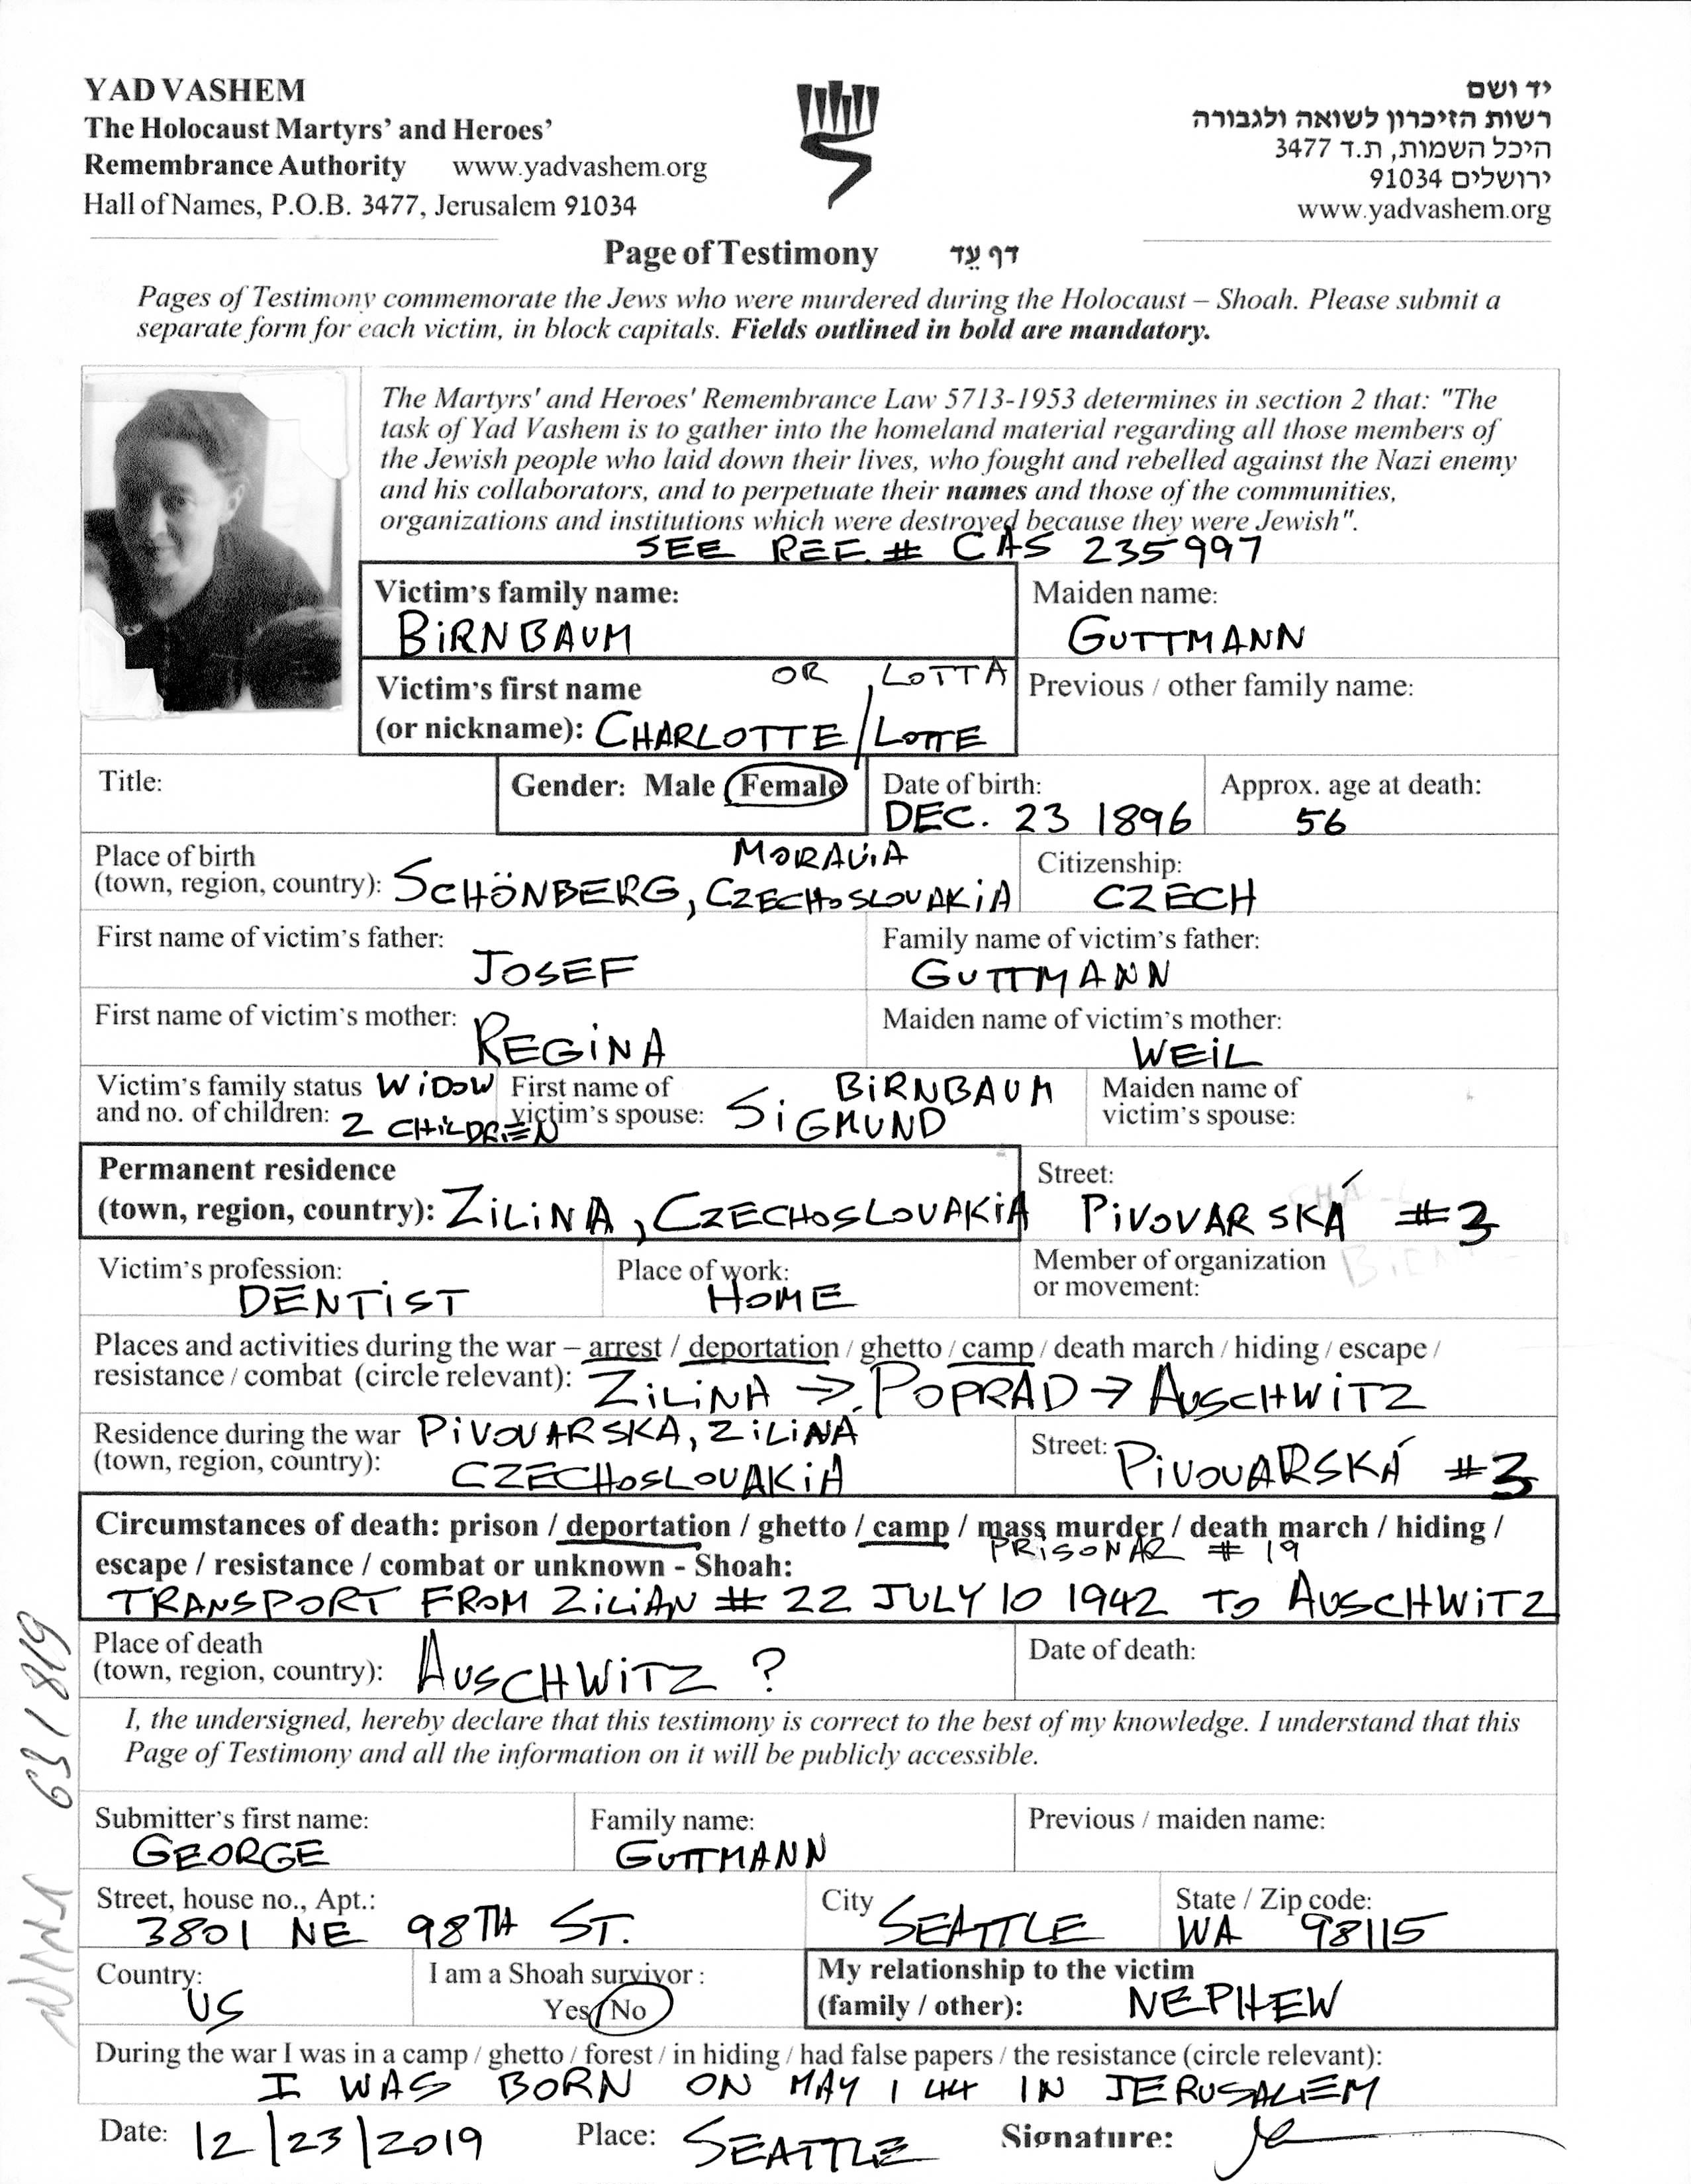 YAD VASHEM
The Holocaust Martyrs' and Heroes'
Remembrance Authority www.yadvashem.org
Hall of Names, P.O.B. 3477, Jerusalem 91034
יד ושם
רשות הזיכרון לשואה ולגבורה
היכל השמות, ת.ד 3477
ירושלים 91034
www.yadvashem.org
Page of Testimony דף עֵד
Pages of Testimony commemorate the Jews who were murdered during the Holocaust – Shoah. Please submit a
separate form for each victim, in block capitals. Fields outlined in bold are mandatory.
The Martyrs' and Heroes' Remembrance Law 5713-1953 determines in section 2 that: "The
task of Yad Vashem is to gather into the homeland material regarding all those members of
the Jewish people who laid down their lives, who fought and rebelled against the Nazi enemy
and his collaborators, and to perpetuate their names and those of the communities,
organizations and institutions which were destroyed because they were Jewish".
SEE REF # CAS 235997
Victim's family name:
BIRNBAUM
Maiden name:
GUTTMANN
Victim's first name
(or nickname): CHARLOTTE / LOTTE
OR LOTTA
Previous / other family name:
Title:
Gender: Male Female
Date of birth:
DEC. 23 1896
Approx. age at death:
56
Place of birth
(town, region, country): SCHÖNBERG, CZECHOSLOVAKIA
MORAVIA
Citizenship:
CZECH
First name of victim's father:
JOSEF
Family name of victim's father:
GUTTMANN
First name of victim's mother:
REGINA
Maiden name of victim's mother:
WEIL
Victim's family status WIDOW
and no. of children: 2 CHILDREN
First name of BIRNBAUM
victim's spouse: SIGMUND
Maiden name of
victim's spouse:
Permanent residence
(town, region, country): ZILINA, CZECHOSLOVAKIA
Street:
PIVOVARSKÁ #3
Victim's profession:
DENTIST
Place of work:
HOME
Member of organization
or movement:
Places and activities during the war – arrest / deportation / ghetto / camp / death march / hiding / escape /
resistance / combat (circle relevant): ZILINA → POPRAD → AUSCHWITZ
Residence during the war PIVOVARSKA, ZILINA
(town, region, country): CZECHOSLOVAKIA
Street: PIVOVARSKÁ #3
Circumstances of death: prison / deportation / ghetto / camp / mass murder / death march / hiding /
PRISONAR # 19
escape / resistance / combat or unknown - Shoah:
TRANSPORT FROM ZILIAN # 22 JULY 10 1942 TO AUSCHWITZ
Place of death
(town, region, country): AUSCHWITZ ?
Date of death:
I, the undersigned, hereby declare that this testimony is correct to the best of my knowledge. I understand that this
Page of Testimony and all the information on it will be publicly accessible.
Submitter's first name:
GEORGE
Family name:
GUTTMANN
Previous / maiden name:
Street, house no., Apt.:
3801 NE 98TH ST.
City SEATTLE
State / Zip code:
WA 98115
Country:
US
I am a Shoah survivor :
Yes/No
My relationship to the victim
(family / other): NEPHEW
During the war I was in a camp / ghetto / forest / in hiding / had false papers / the resistance (circle relevant):
I WAS BORN ON MAY 1 44 IN JERUSALEM
Date: 12/23/2019 Place: SEATTLE Signature: